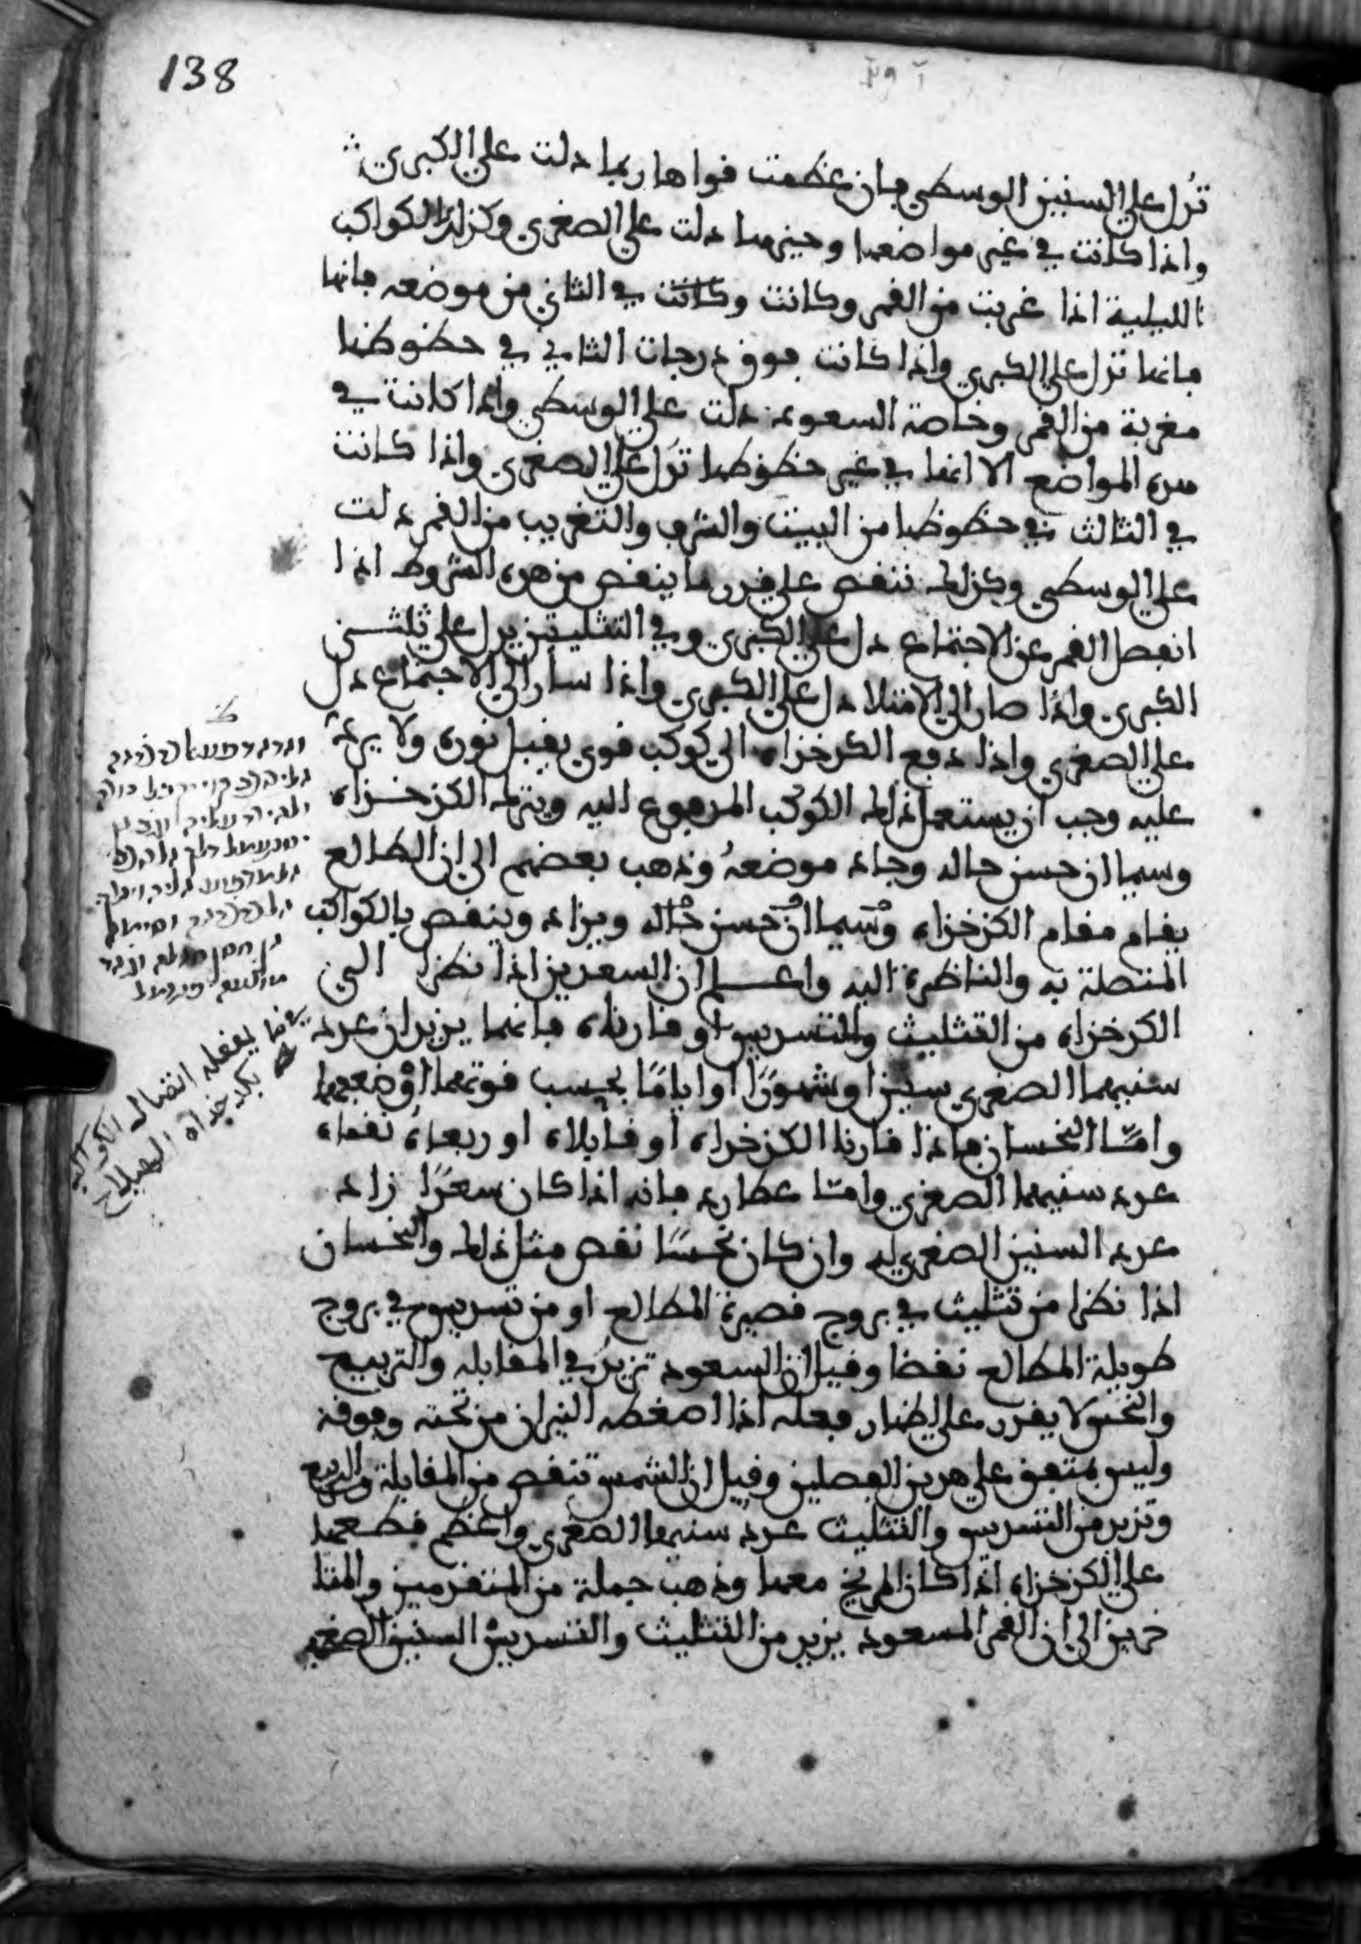 138
تدل على السنين الوسطى فان عظمت قواها ربما دلت على الكبرى
واذا كانت في غير مواضعها وحيزها دلت على الصغرى وكذلك الكواكب
الليلية اذا غربت من القمر وكانت وكانت في الثاني من موضعه فانها
فانها تدل على الكبرى واذا كانت فوق درجات الثاني في حظوظها
مغربة من القمر وخاصة السعود دلت على الوسطى واذا كانت في
هذه المواضع الا انها في غير حظوظها تدل على الصغرى واذا كانت
في الثالث في حظوظها من البيت والشرف والتغريب من القمر دلت
على الوسطى وكذلك تنقص على قدر ما ينقص من هذه الشروط اذا
انفصل القمر عن الاجتماع دل على الكبرى وفي التثليثين يدل على ثلثي
الكبرى واذا صار الى الامتلا دل على الكبرى واذا سار الى الاجتماع دل
على الصغرى واذا دفع الكدخذاه الى كوكب قوي يقبل نوره ولا يرده
عليه وجب ان يستعمل ذلك الكوكب المدفوع اليه ويترك الكدخذاه
وسيما ان حسن حاله وجاد موضعه وذهب بعضهم الى ان الطالع
يقام مقام الكدخذاه وسيما ان حسن حاله ويزاد وينقص بالكواكب
المتصلة به والناظرة اليه واعلم ان السعدين اذا نظرا الى
الكدخذاه من التثليث والتسديس او قارناه فانهما يزيدان عدد
سنيهما الصغرى سنين او شهورًا او ايامًا بحسب قوتهما او ضعفهما
وامّا النحسان فاذا قارنا الكدخذاه او قابلاه او ربعاه نقصاه
عدد سنيهما الصغرى وامّا عطارد فانه اذا كان سعدًا زاد
عدد السنين الصغرى له وان كان نحسًا نقص مثل ذلك والنحسان
اذا نظرا من تثليث في بروج قصيرة المطالع او من تسديس في بروج
طويلة المطالع نقصا وقيل ان السعود تزيد في المقابلة والتربيع
والنحس لا يقدر على اظهار فعله اذا اضغطه النيران من تحته وفوقه
وليس بمتفق على هذين الفصلين وقيل ان الشمس تنقص من المقابلة والتربيع
وتزيد من التسديس والتثليث عدد سنيها الصغرى واعظم قطعها
على الكدخذاه اذا كان المريخ معها وذهب جملة من المتقدمين والمتا
خرين الى ان القمر المسعود يزيد من التثليث والتسديس السنين الصغرى
فيما يفعله اتصال الكواكب
بكدخداه الهيلاج